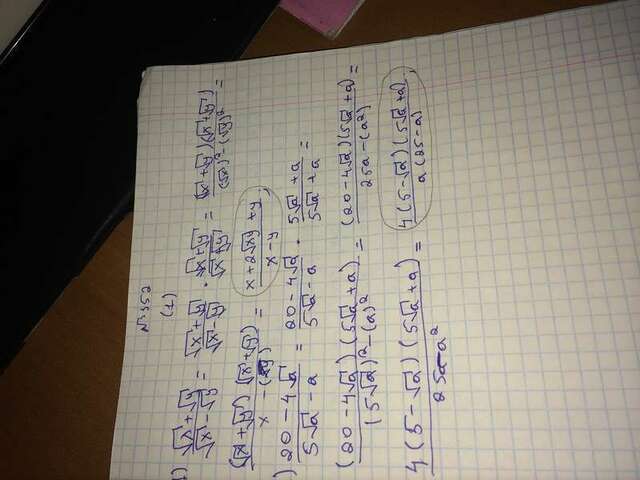 №352
(1)
1) (√x+√y)/(√x-√y) = (√x+√y)/(√x-√y) · (√x+√y)/(√x+√y) = (√x+√y)(√x+√y)/((√x)²-(√y)²) =
(√x+√y)(√x+√y)/(x-(y)) = (x+2√xy+y)/(x-y),
) (20-4√a)/(5√a-a) = (20-4√a)/(5√a-a) · (5√a+a)/(5√a+a) =
(20-4√a)(5√a+a)/((5√a)²-(a)²) = (20-4√a)(5√a+a)/(25a-(a²)) =
4(5-√a)(5√a+a)/(25a-a²) = 4(5-√a)(5√a+a)/(a(25-a)),